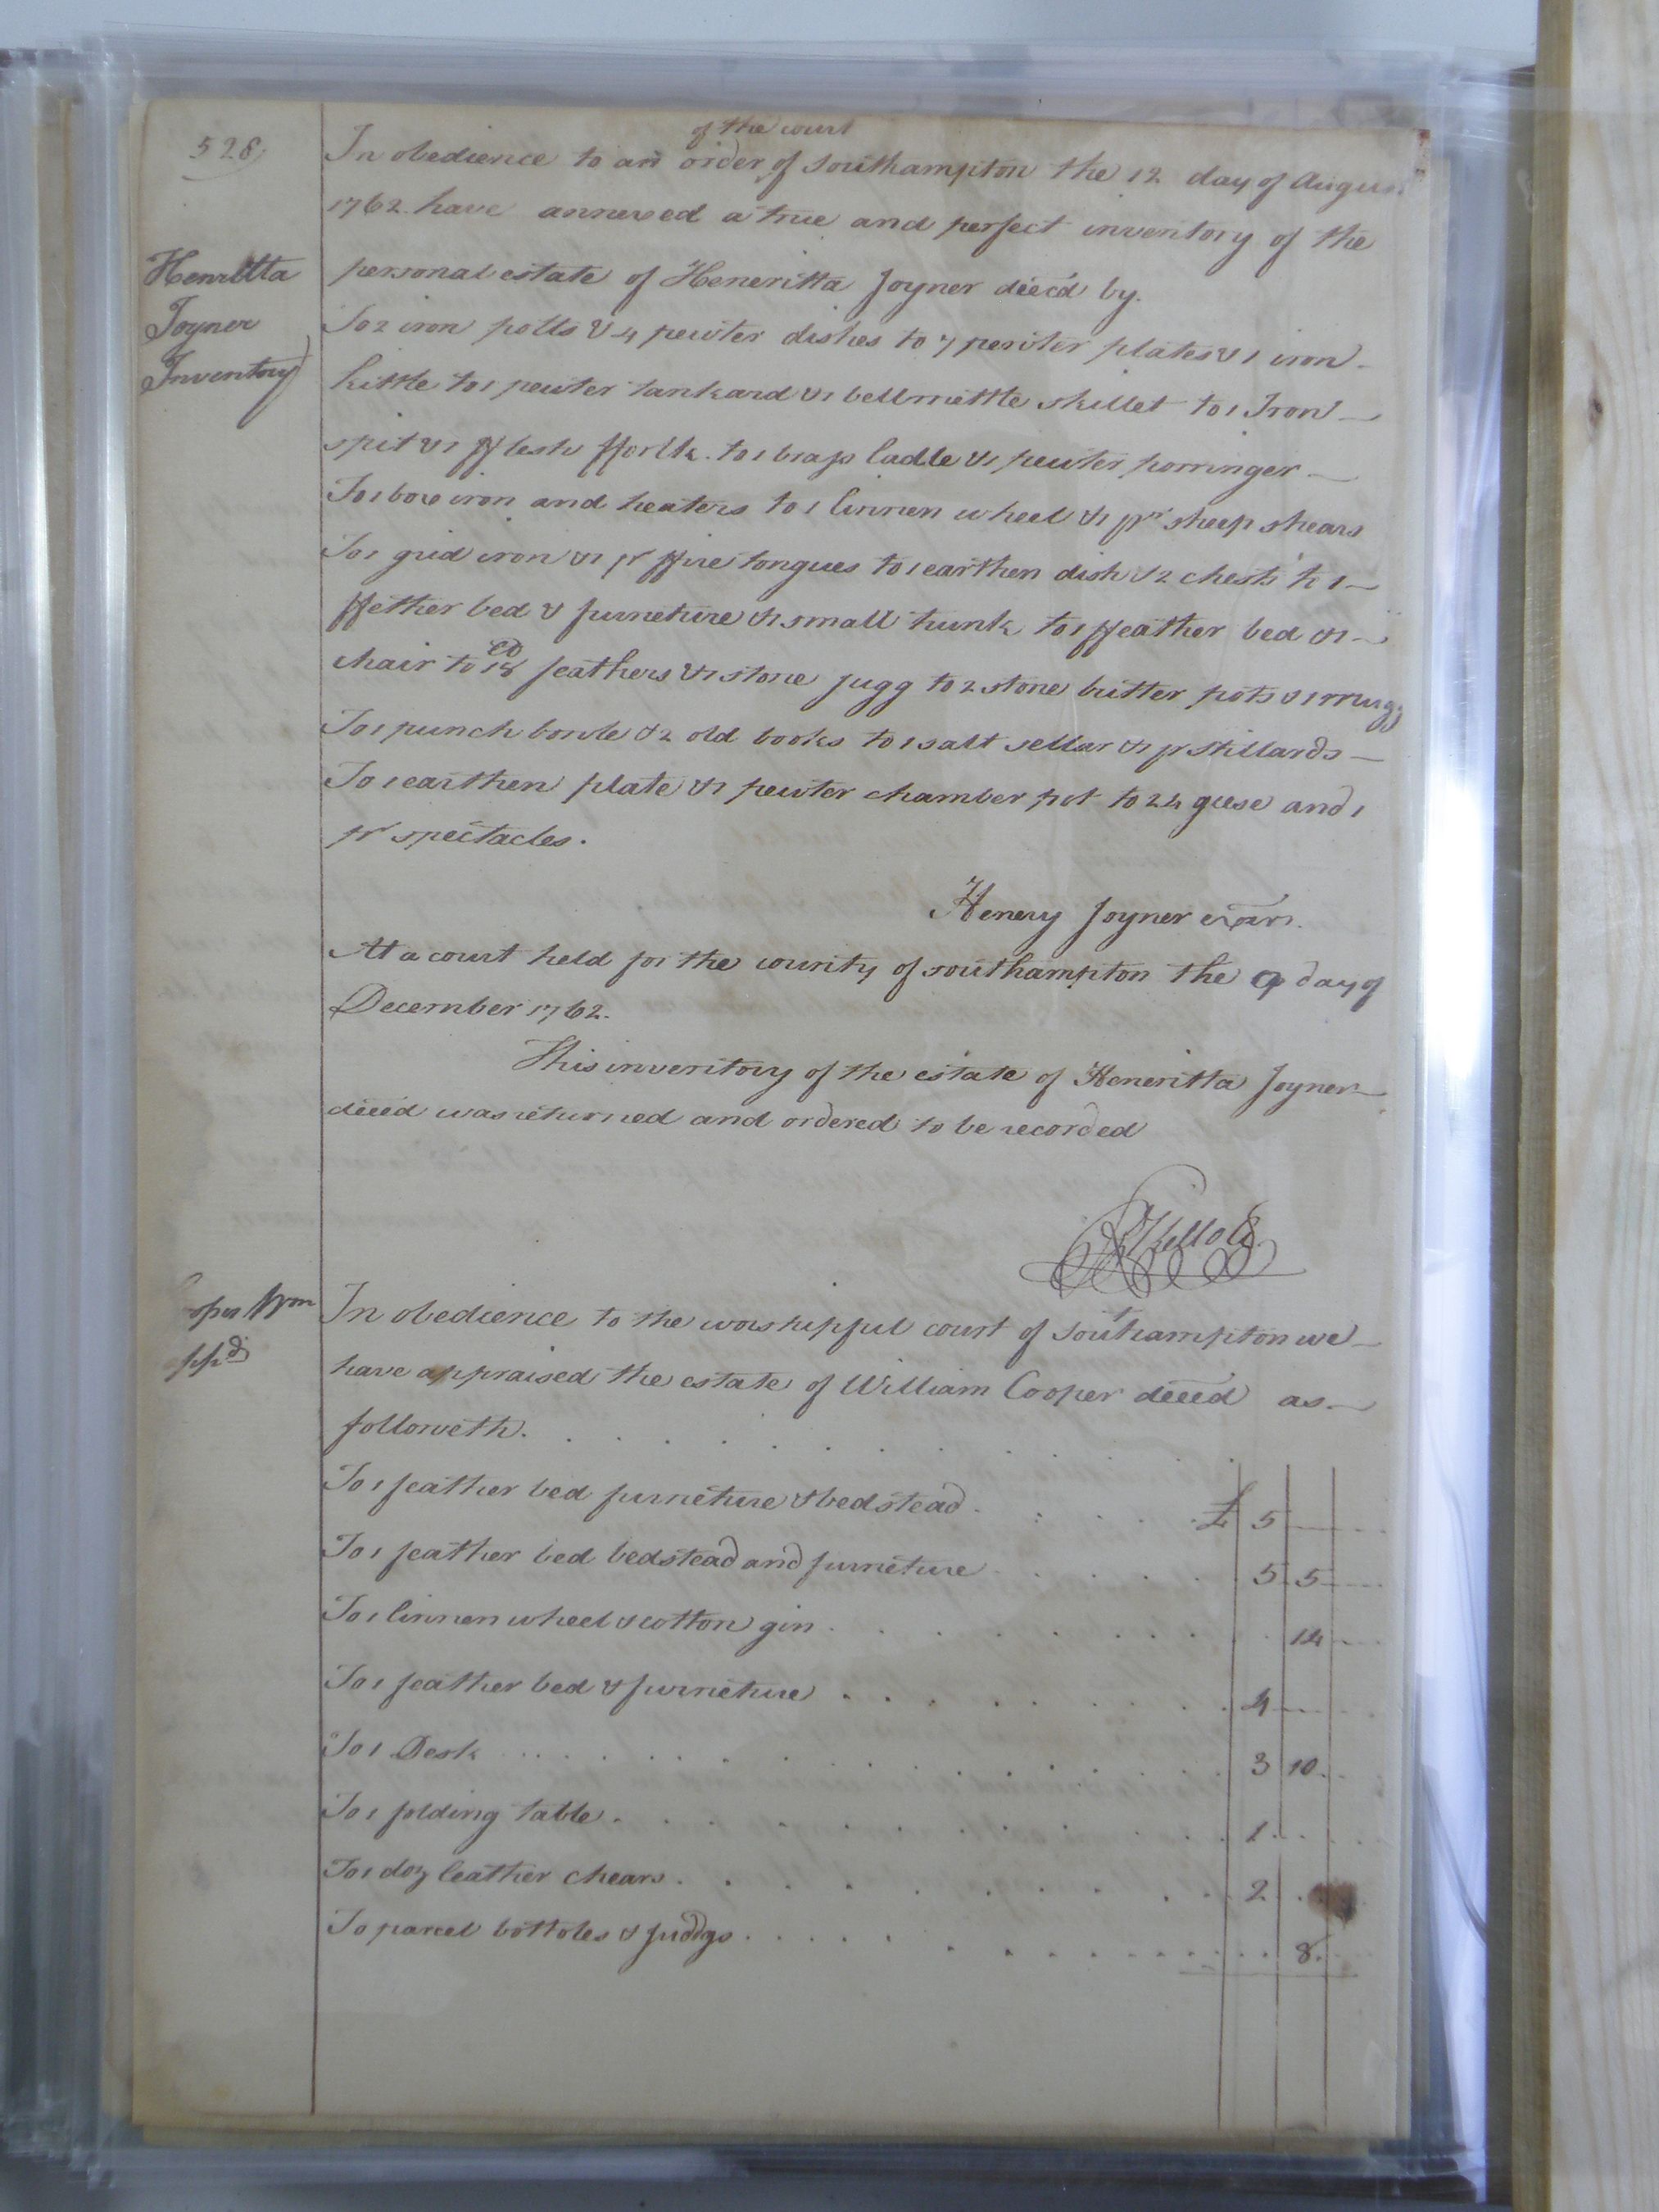 528
of the court
In obedience to an order of Southampton the 12 day of August
1762 have annexed a true and perfect inventory of the
Henritta
personal estate of Heneritta Joyner deced by.
Joyner
To 2 iron potts & 4 pewter dishes to 7 pewter plates & 1 iron
Inventory
kittle to 1 pewter tankard & 1 bellmettle skillet to 1 Iron
spit & 1 fflesh fforlk. to 1 brass ladle & 1 pewter porringer
To 1 box iron and heaters to 1 linnen wheel & 1 pr sheep shears
To 1 grid iron & 1 pr ffire tongues to 1 earthen dish & 2 chests to 1
ffether bed & furneture & 1 small trunk to 1 ffeather bed & 1
chair to 18 feathers & 1 stone jugg to 2 stone butter pots & 1 mugg
To 1 punch bowle & 2 old books to 1 salt sellar & 1 pr stillards
To 1 earthen plate & 1 pewter chamber pot to 24 geese and 1
pr spectacles.
Henery Joyner exors.
At a court held for the county of southampton the 9 day of
December 1762.
This inventory of the estate of Heneritta Joyner
deced was returned and ordered to be recorded
R Kello C
oper Wm
In obedience to the worshipful court of southampton we
ppd
have appraised the estate of William Cooper deced as
followeth.
To 1 feather bed furneture & bedstead £ 5
To 1 feather bed bedstead and furneture 5 5
To 1 linnen wheel & cotton gin 12
To 1 feather bed & furneture 4
To 1 Desk 3 10
To 1 folding table 1
To 1 doz leather chears 2
To parcel bottoles & juddgs 8